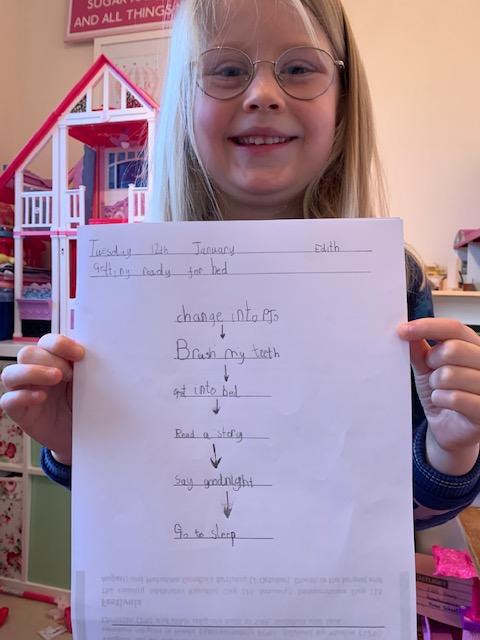 SUGAR
AND ALL THINGS
Tuesday 12th January Edith
Getting ready for bed
change into PJs
Brush my teeth
get into bed
Read a story
Say goodnight
Go to sleep
Festivals